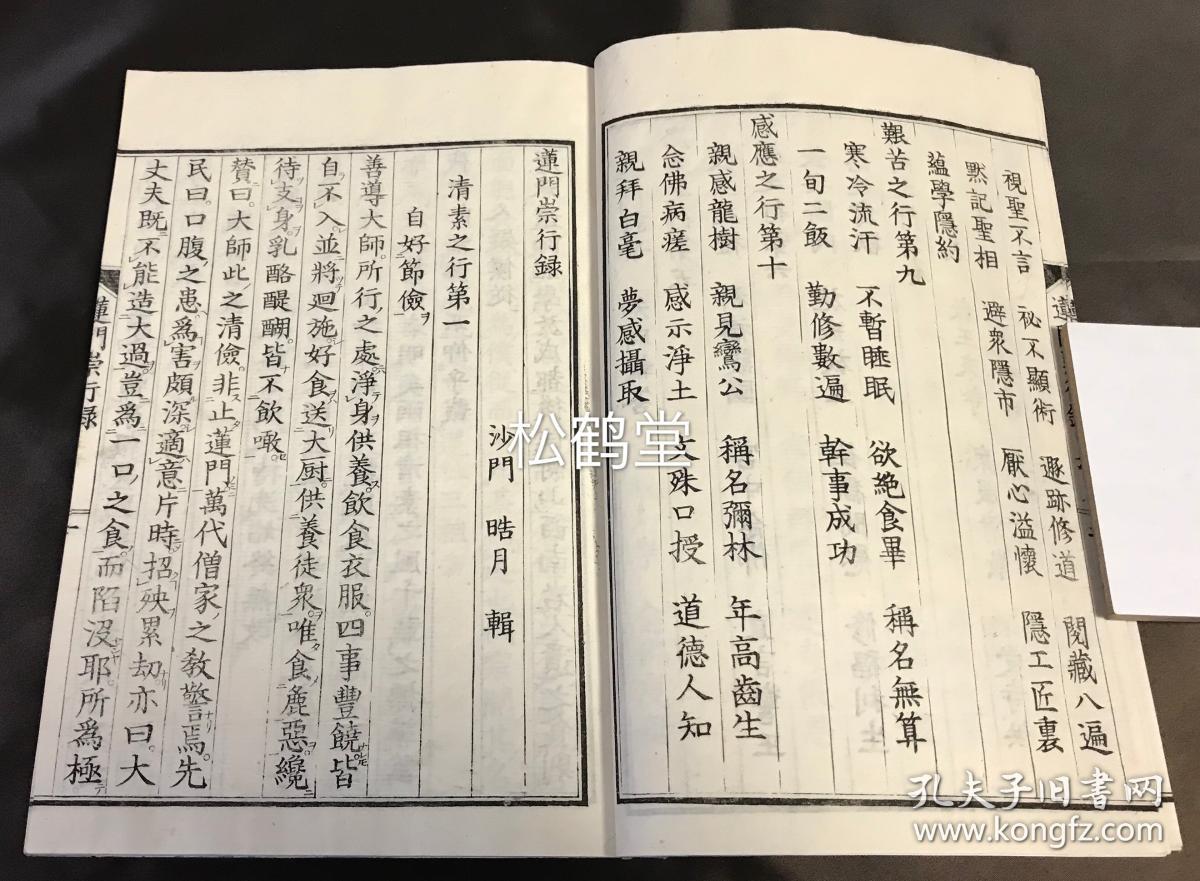 視聖不言 祕不顯術 遯跡修道 閱藏八遍
默記聖相 避衆隱市 厭心溢懷 隱工匠裏
蘊學隱約
艱苦之行第九
寒冷流汗 不暫睡眠 欲絶食畢 稱名無算
一旬二飯 勤修數遍 幹事成功
感應之行第十
親感龍樹 親見鸞公 稱名彌林 年高齒生
念佛病瘥 感示淨土 文殊口授 道德人知
親拜白毫 夢感攝取
蓮門崇行録
沙門 晧月 輯
清素之行第一
自好節儉ヲ
善導大師。所行ノ之處。淨メ身ヲ供養ス。飲食衣服。四事豐饒ナレトモ皆
自不入。並將迴施ス。好食ハ送テ大厨ニ供養徒衆ヲ。唯食シテ麁惡ヲ纔ニ
待支身ヲ乳酪醍醐。皆不飲噉セ。
賛曰。大師此ノ之清儉。非ス止タ蓮門萬代僧家ノ之教警ナリ焉。先
民曰。口腹之患。爲害頗深。適意片時。招殃累劫。亦曰。大
丈夫既ニ不能造大過ヲ。豈爲一口ノ之食而陷没耶。所爲極テ
蓮門崇行録
一
松鹤堂
孔夫子旧书网
www.kongfz.com